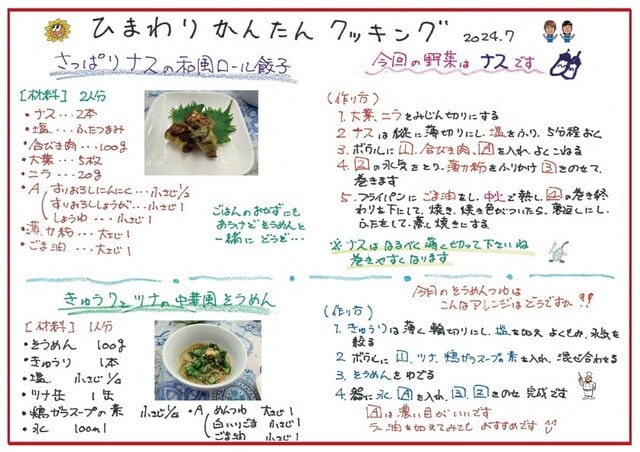 ひまわり かんたん クッキング 2024.7
さっぱりナスの和風ロール餃子
今回の野菜は ナスです
[材料] 2人分
・ナス・・・2本
・塩・・・ふたつまみ
・合びき肉・・・100g
・大葉・・・5枚
・ニラ・・・20g
・A すりおろしにんにく・・・小さじ1/2
すりおろししょうが・・・小さじ1
しょうゆ・・・小さじ1
・薄力粉・・・大さじ1
・ごま油・・・大さじ1
ごはんのおかずにも
そうめんと
一緒に どうぞ…
(作り方)
1. 大葉、ニラをみじん切りにする
2 ナスは縦に薄切りにし、塩をふり、5分程おく
3. ボウルに1、合びき肉、Aを入れ、よくこねる
4. 2の水気をとり、薄力粉をふりかけ3をのせて、
巻きます
5. フライパンに ごま油をし、中火で熱し、4の巻き終
わりを下にして、焼き、焼き色がついたら、裏返しにし、
ふたをして、蒸し焼きにする
※ナスは なるべく薄く切って下さいね
巻きやすくなります
きゅうりとツナの中華風そうめん
[材料] 1人分
・そうめん 100g
・きゅうり 1本
・塩 小さじ1/2
・ツナ缶 1缶
・鶏ガラスープの素 小さじ1/2
・水 100ml
・A めんつゆ 大さじ1
白いりごま 小さじ1
ごま油 小さじ1
今日のそうめんつゆは
こんなアレンジはどうですか!!
(作り方)
1. きゅうりは薄く輪切りにし、塩を加え よくもみ、水気を
絞る
2 ボウルに 1、ツナ、鶏ガラスープの素を入れ、混ぜ合わせる
3. そうめんをゆでる
4. 器に水、Aを入れ、3、2をのせ 完成です
Aは濃い目がいいです
ラー油を加えてみても おすすめです